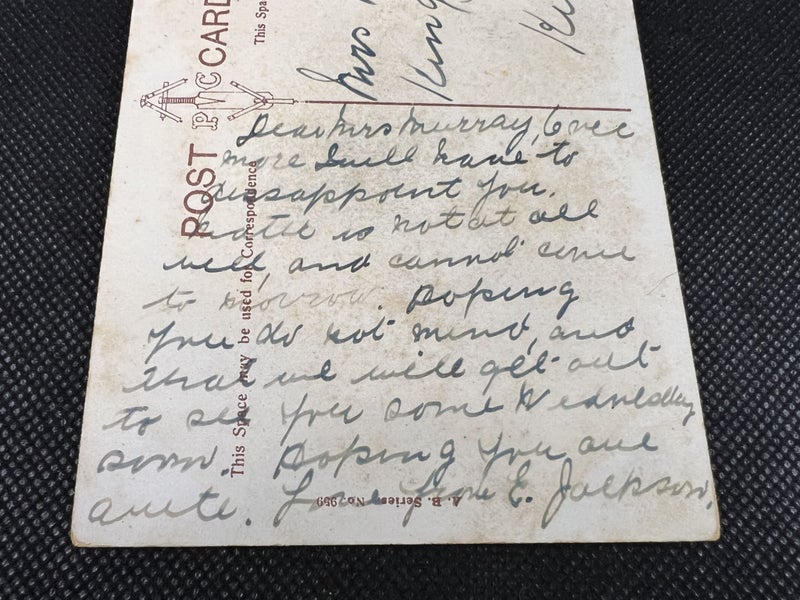 POST CARD
This Spa
Mrs
King
Ki
Dear Mrs Murray, Once
more I will have to
dissappoint you.
is not at all
well, and cannot come
to morrow. Hoping
you do not mind, and
that we will get out
to see you some Wednesday
soon. Hoping you are
quite. Love from E. Jackson.
This Space may be used for Correspondence
A. B. Series No. 7959